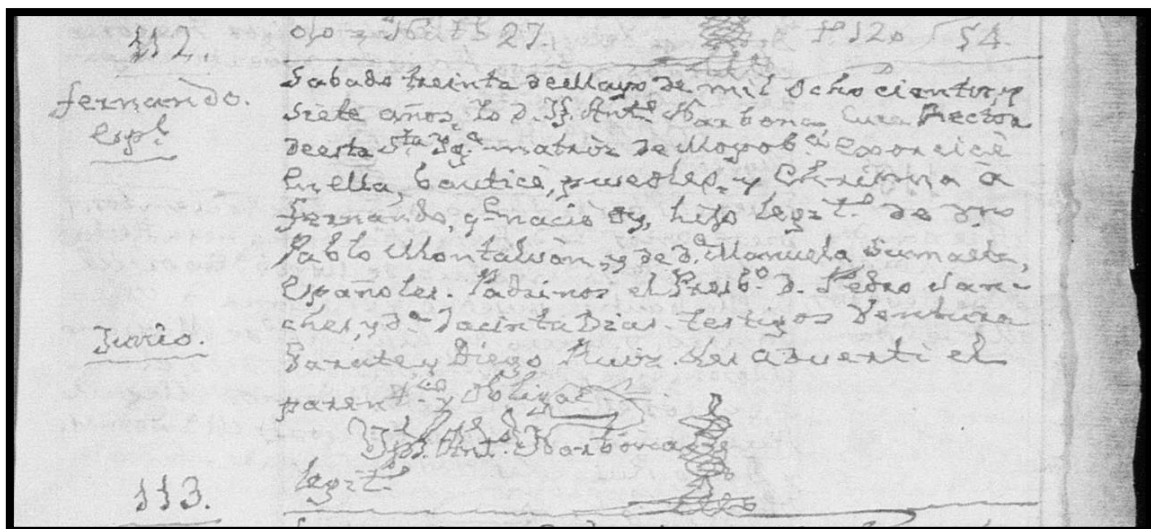 112.
27. 54.
fernando.
Espl.
Sabado treinta de Mayo de mil Ocho cientos, y
siete años, Yo D. Jph Antº Narbona Cura Rector
de esta Sta Yga matriz de Moyobª Exorcicè
En ella, bauticè, puse oleo, y Chrisma à
Fernando, q nacio oy, hijo legitº de dn
Pablo Montalvan, y de dª Manuela
Españoles. Padrinos el Presbº. D. Pedro San-
ches, y dª Jacinta Dias. testigos Ventura
Zarate, y Diego Ruiz. Les adverti el
parentco y obligac
Jph. Antº. Narbona
legitº
Junio.
113.